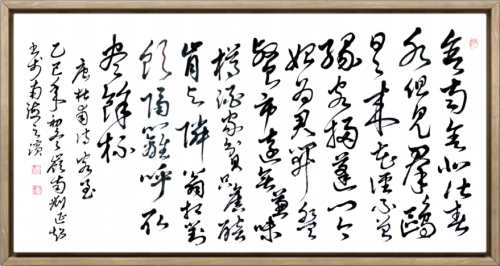 舍南舍北皆春
水但見羣鷗
日日來花徑不曾
緣客掃蓬門今
始為君開盤
餐市遠無兼味
樽酒家貧只舊醅
肯與鄰翁相對
飲隔籬呼取
盡餘杯
唐杜甫詩客至
乙巳年初冬嶺南劉延
书於南海之濱